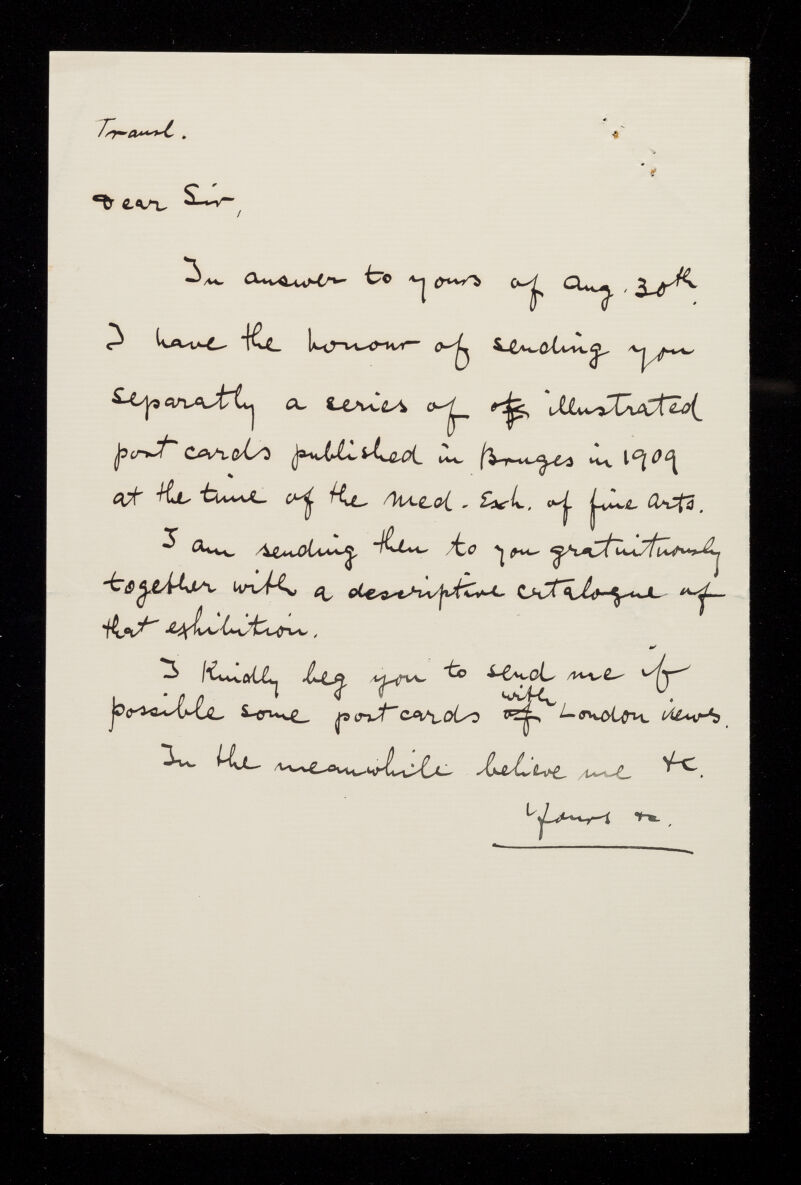 Transl.
Dear Sir,
In answer to yours of Aug. 30th.
I have the honour of sending you
separatly a series of of illustrated
post cards published in Bruges in 1909
at the time of the Med. Exh. of fine Arts.
I am sending then to you gratuituously
together with a descriptive catalogue of
that exhibition.
I kindly beg you to send me if
with
possible some post cards of London views.
In the meanwhile believe me &c.
Yours &c.